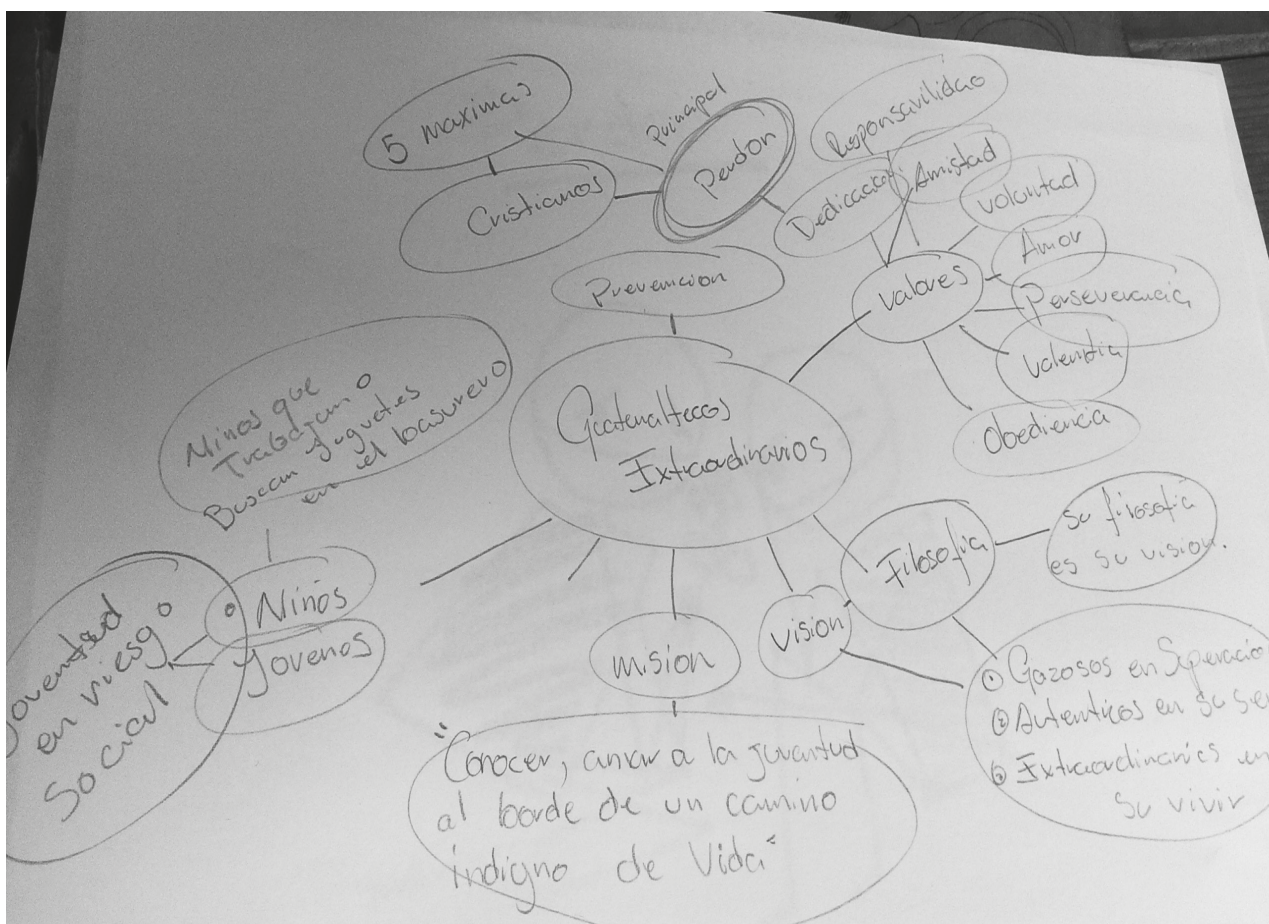 5 Maximas
Cristianos
Principal
Perdon
Responsavilidad
Dedicacion
Amistad
Voluntad
Amor
Perseverancia
Valentia
Obediencia
Valores
Prevencion
Guatemaltecos
Extraordinarios
Niños que
Trabajan o
Buscan juguetes
en el basurero
Niños
Jovenes
en riesgo
Social
mision
"Conocer, amar a la juventud
al borde de un camino
indigno de Vida"
vision
Filosofia
Su filosofia
es su vision.
① Gozosos en
② Autenticos en su
③ Extraordinarios en
su vivir